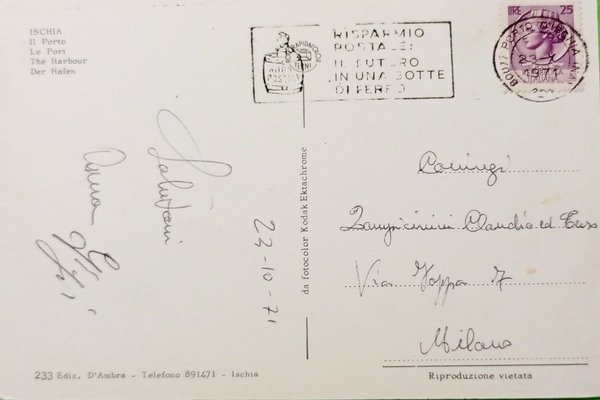 ISCHIA
Il Porto
Le Port
The Harbour
Der Hafen
RISPARMIO
POSTALE:
IL FUTURO
IN UNA BOTTE
DI FERRO
LIRE 25
ITALIANA
PORTO D'ISCHIA
23-X
1971
Saluti
Anna
23-10-71
da fotocolor Kodak Ektachrome
Coniugi
Claudio ed
Via 7
Milano
233 Ediz. D'Ambra - Telefono 891471 - Ischia
Riproduzione vietata